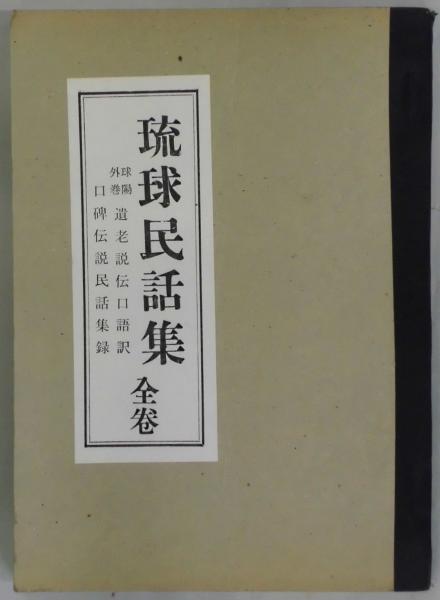 琉球民話集 全巻
球陽外巻 遺老説伝口語訳
口碑伝説民話集録